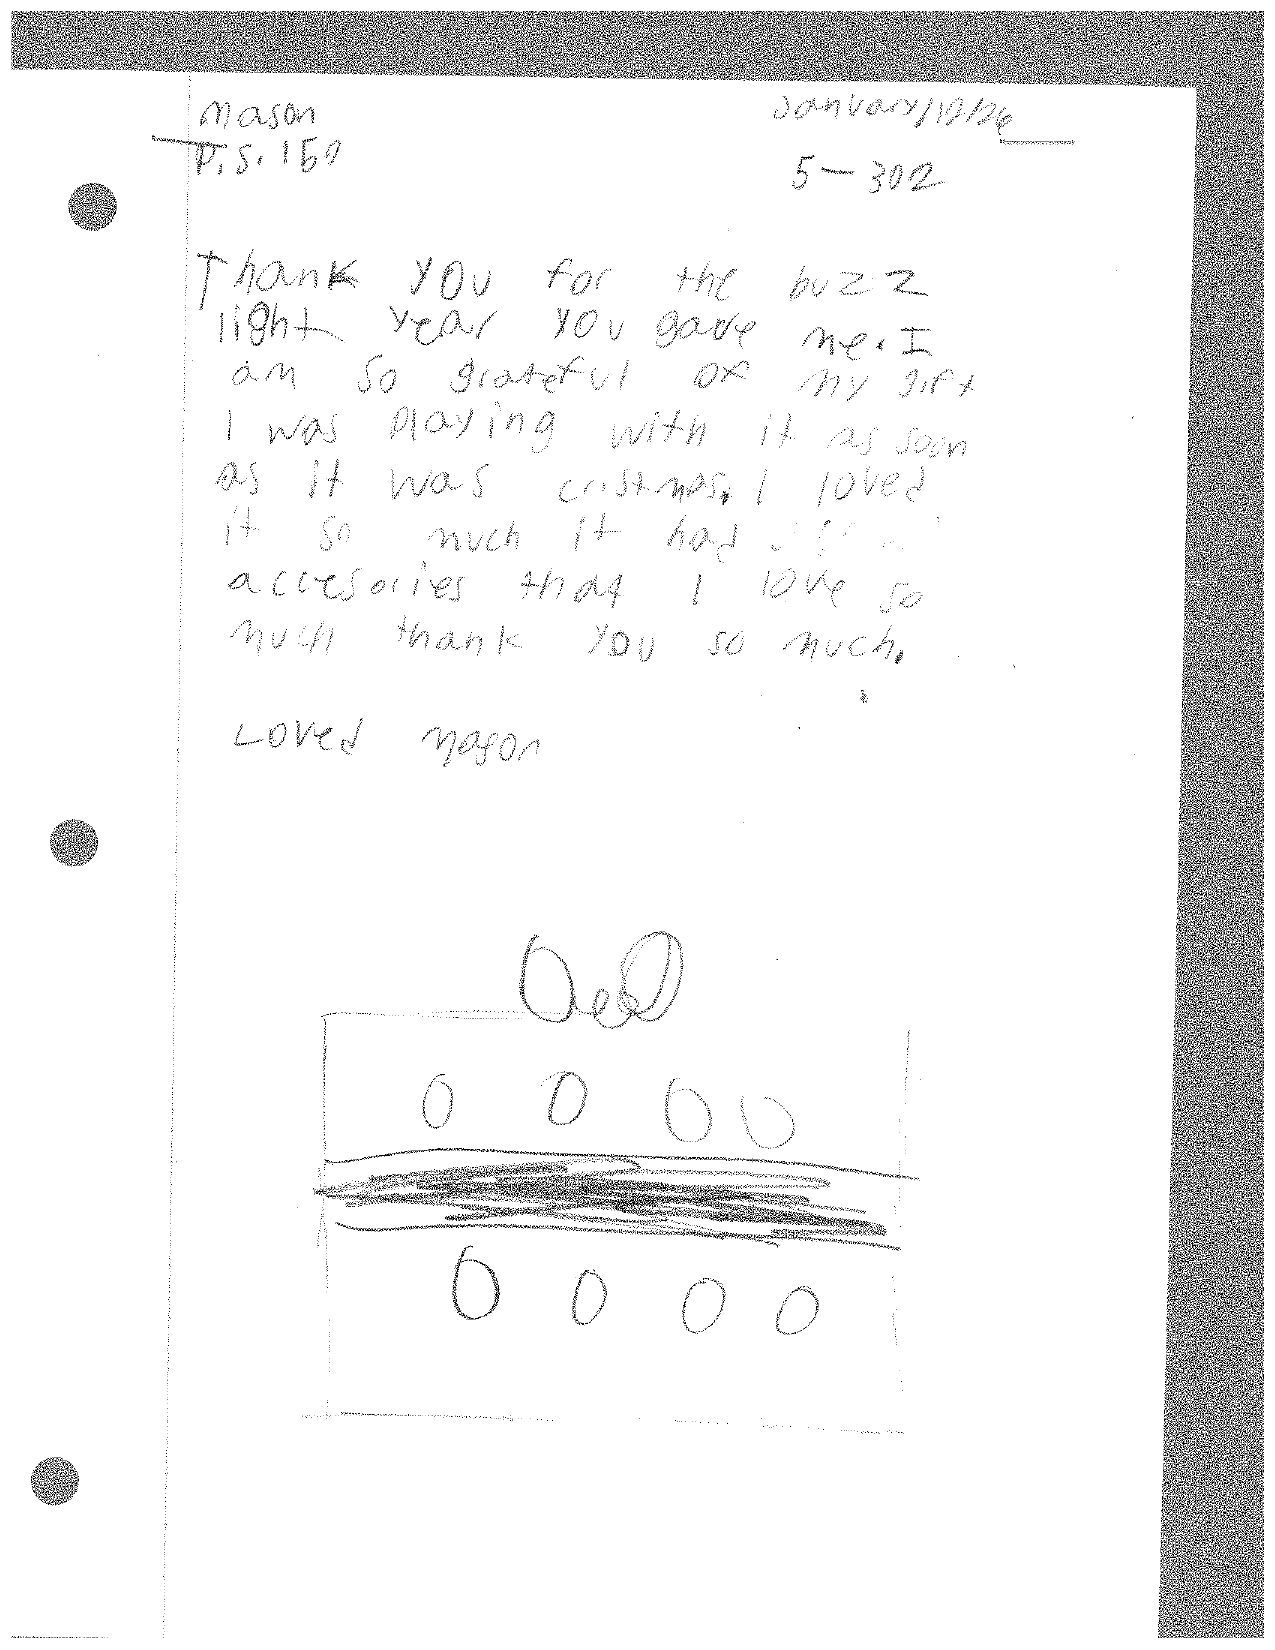 Mason
January/12/26
P.S. 150
5-302
Thank you for the buzz
light year you gave me. I
am so grateful of my gift
I was playing with it as soon
as it was cristmas. I loved
it so much it had
accesories that I love so
much thank you so much.
Loved Mason